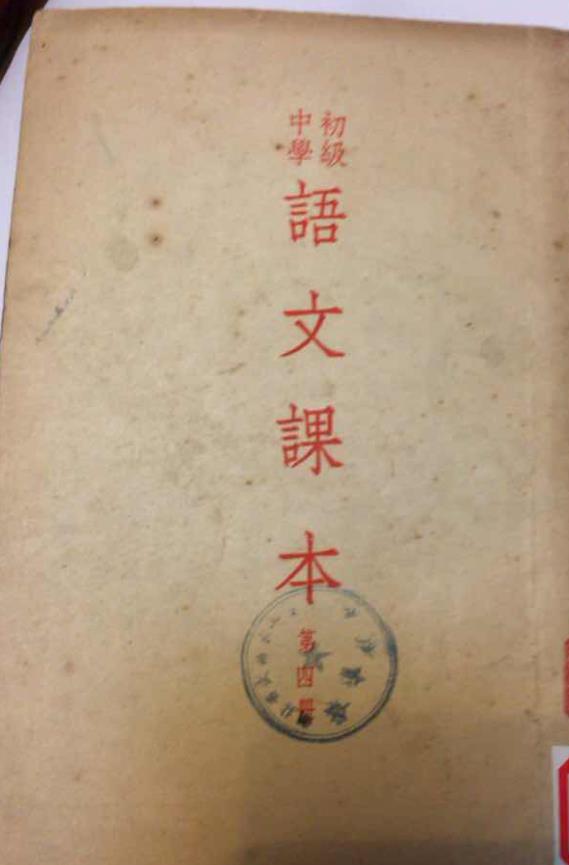 初級
中學
語文課本
第四冊